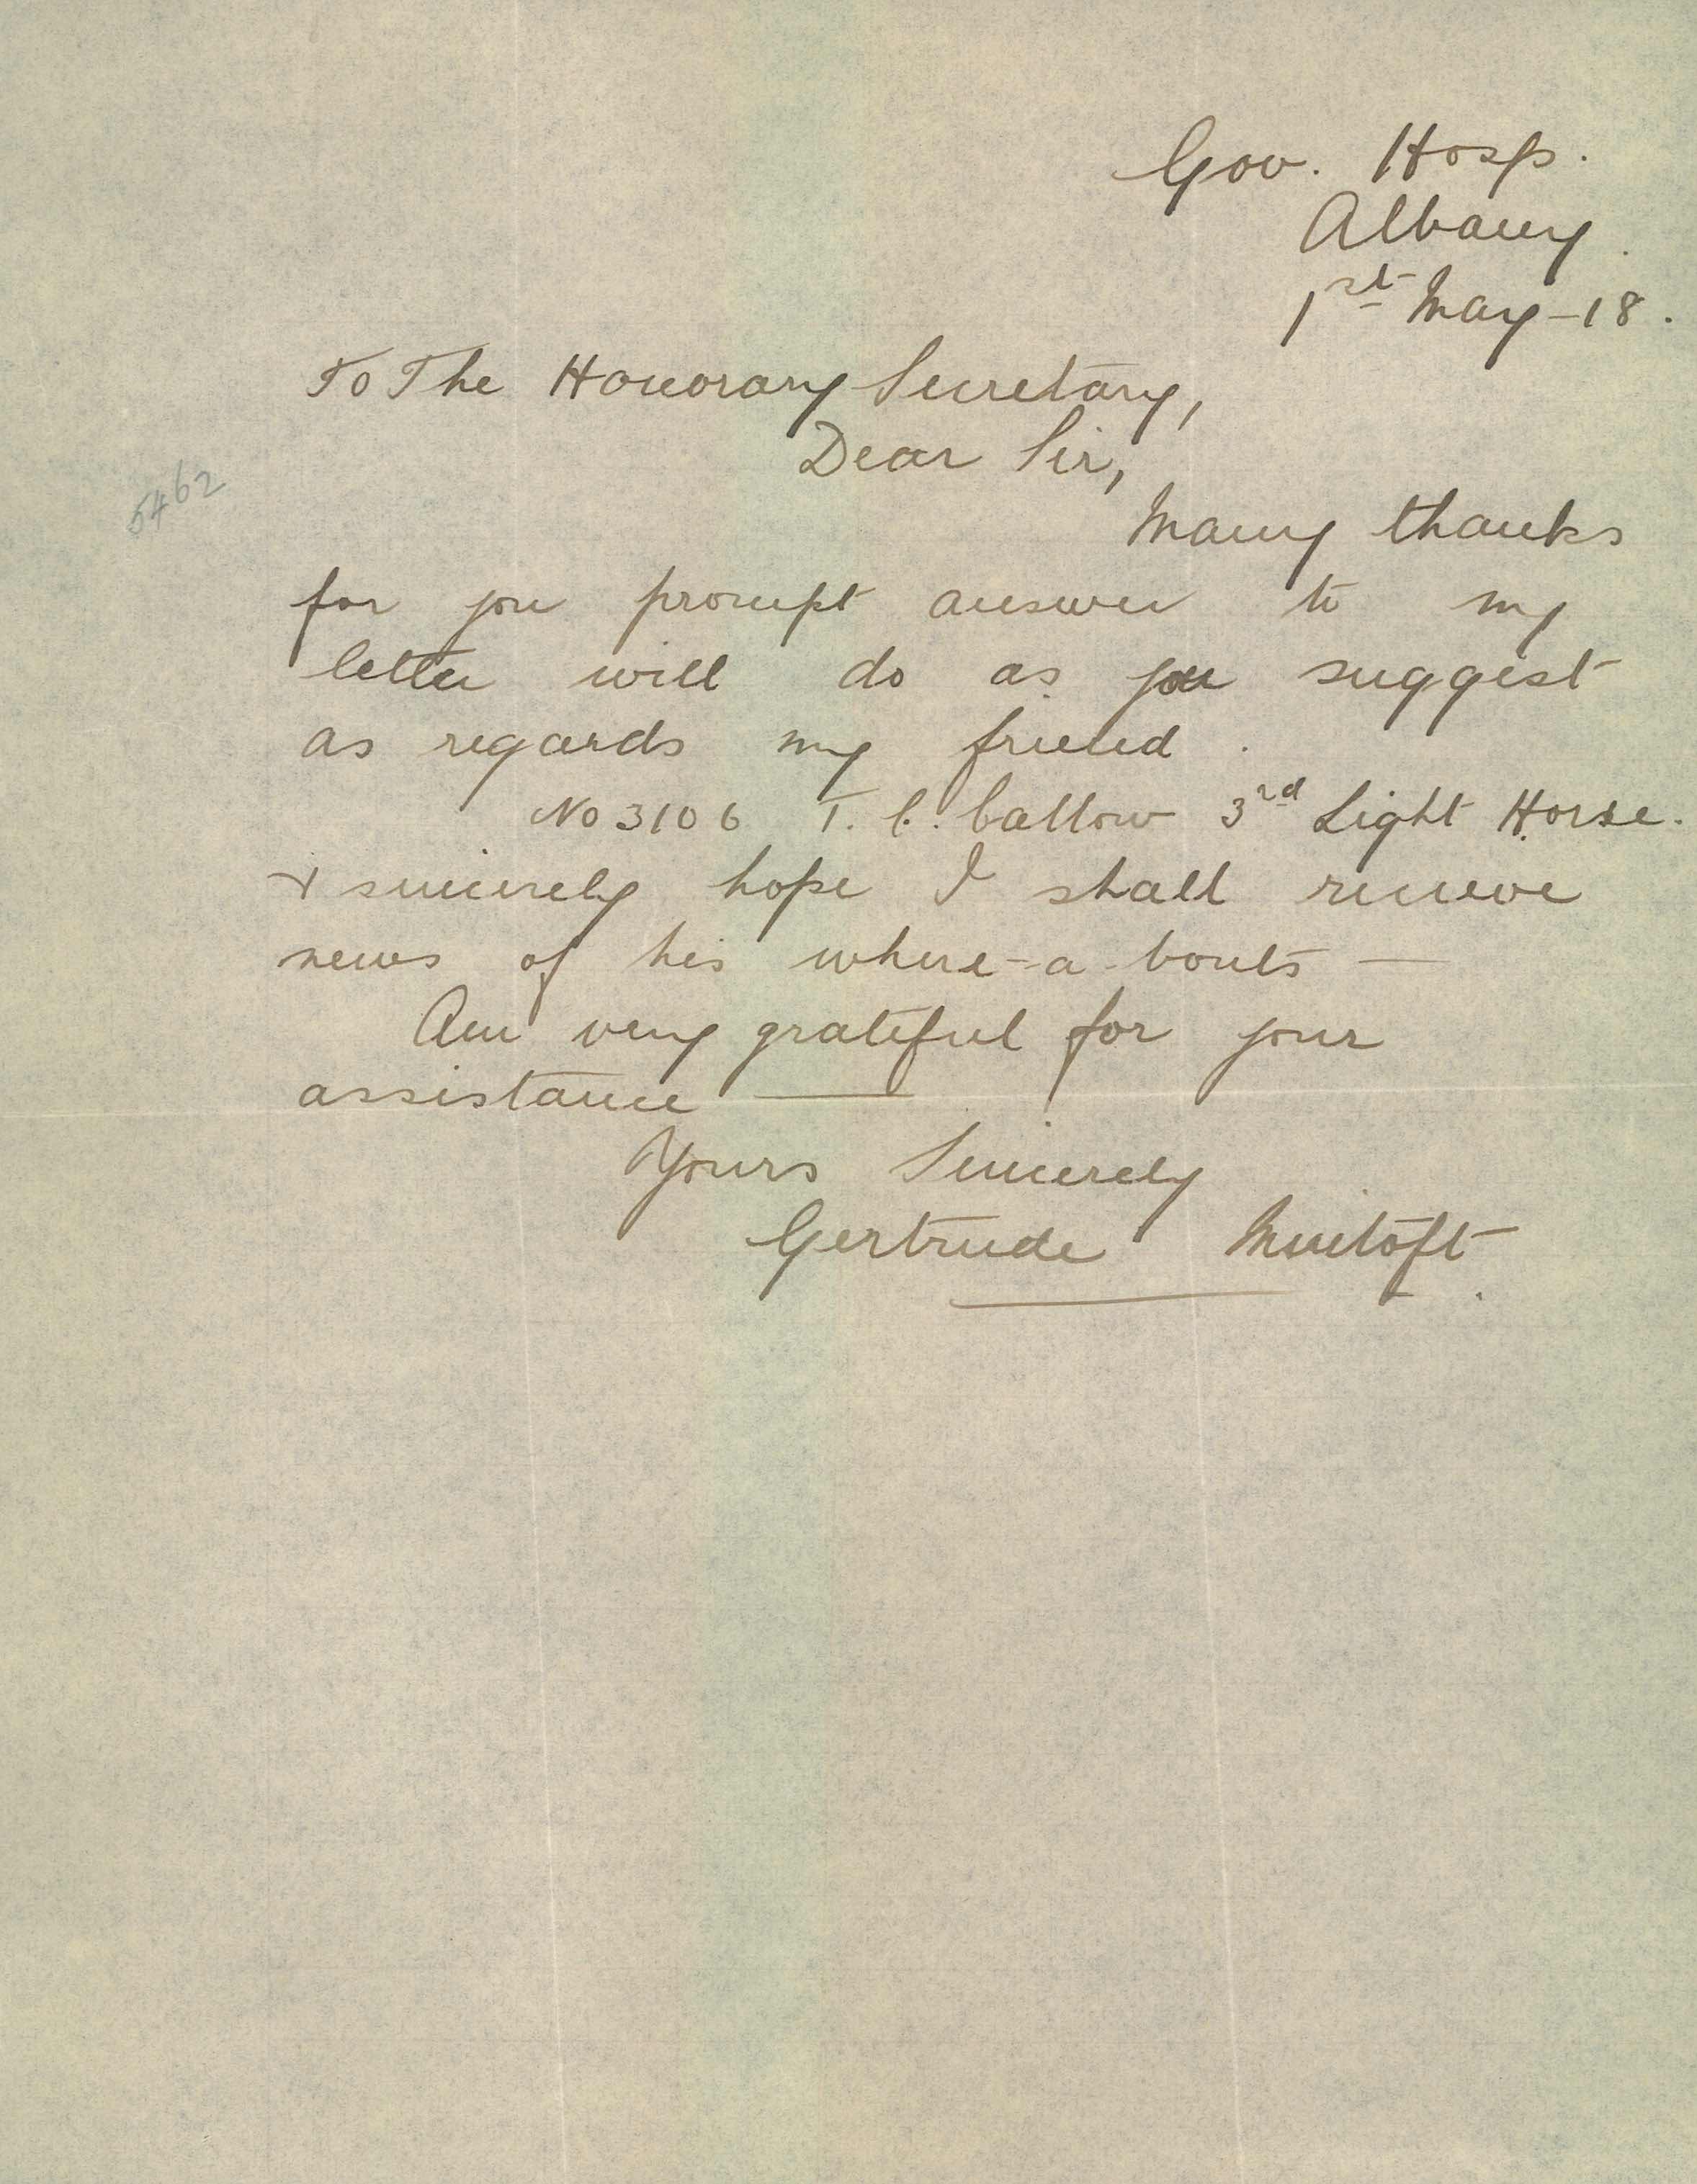 Gov. Hosp.
Albany.
1st May-18.
To The Honorary Secretary,
Dear Sir,
5462
Many thanks
for you prompt answer to my
letter will do as you suggest
as regards my friend.
No 3106 T. C. Callow 3rd Light Horse.
& sincerely hope I shall receive
news of his where-a-bouts —
Am very grateful for your
assistance —
Yours Sincerely
Gertrude